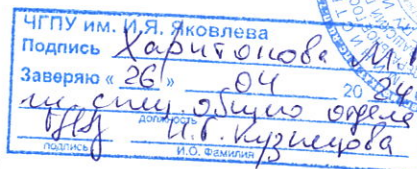 ЧГПУ им. И.Я. Яковлева
Подпись Харитонова М.
Заверяю « 26 » 04 2024
гл. спец. общего отдела
должность
Н.Г. Кузнецова
подпись И.О. Фамилия